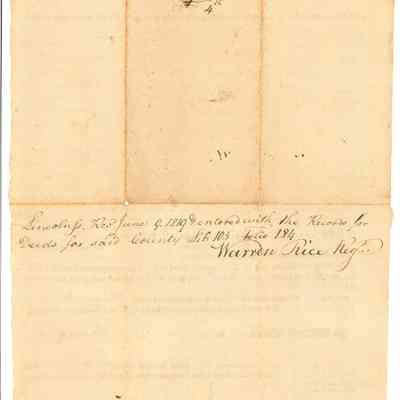 4
Lincoln ss. Recd June 9. 1819 & entered with the Records for
Deeds for said County Lib 103 folio 184
Warren Rice Regr